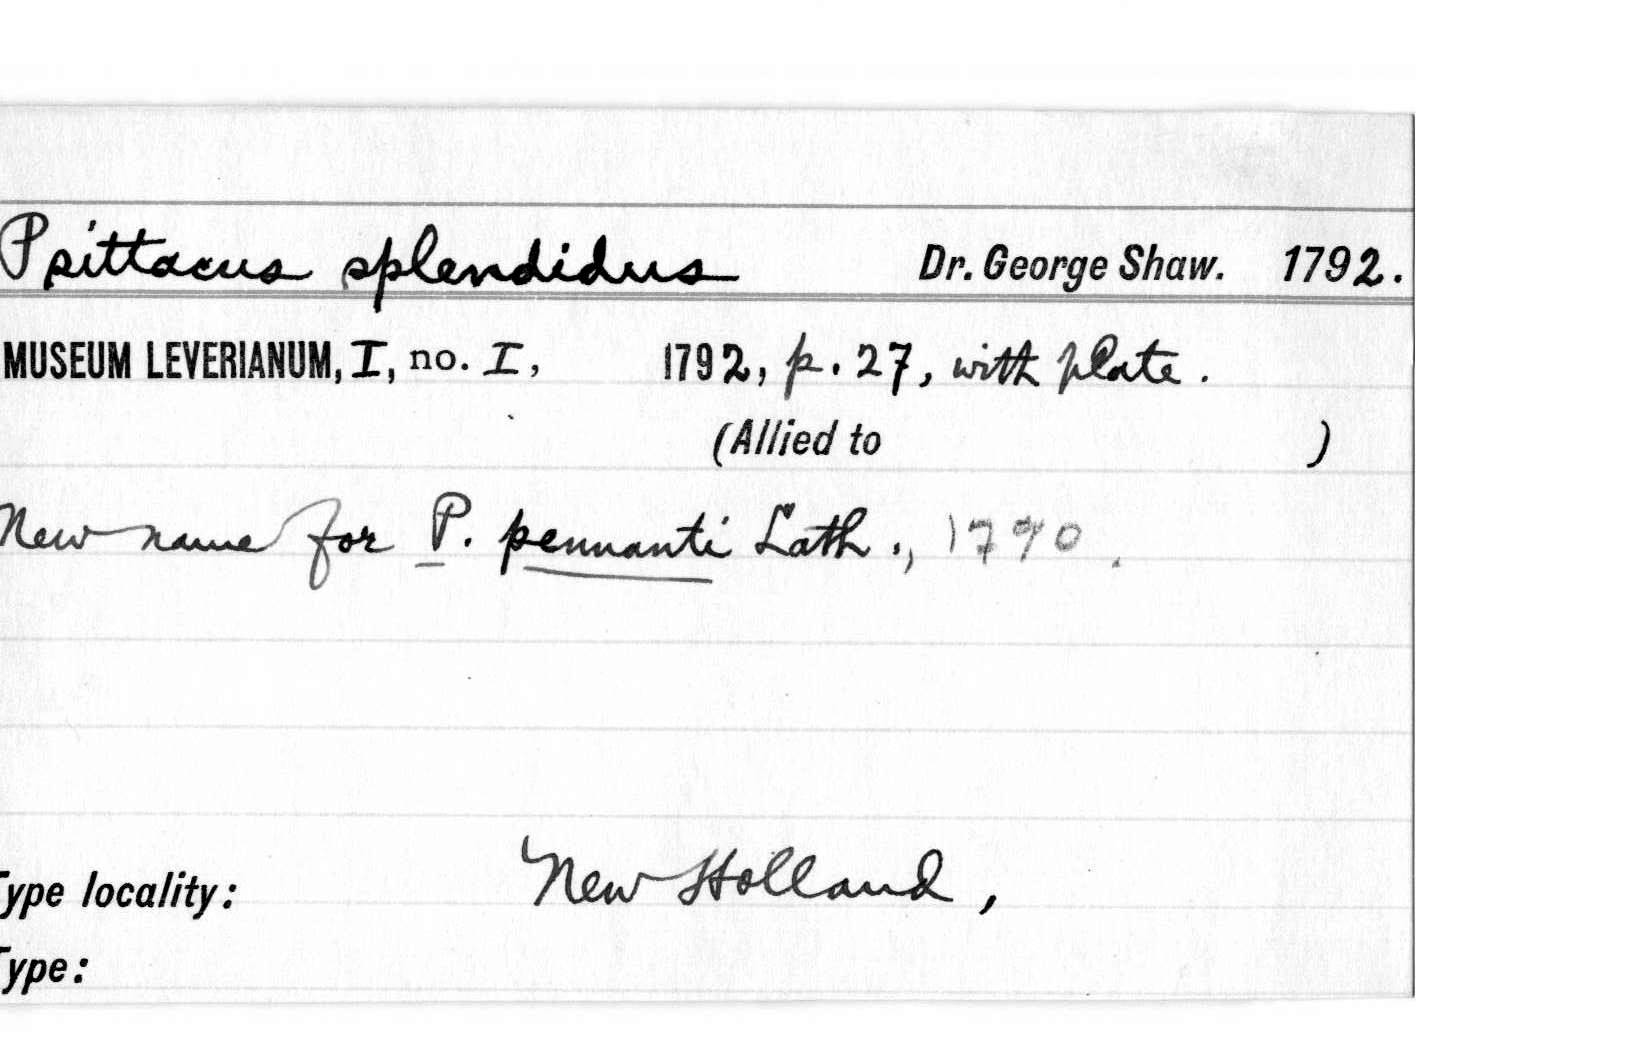 Psittacus splendidus Dr. George Shaw. 1792.
MUSEUM LEVERIANUM, I, no. I, 1792, p. 27, with plate.
(Allied to )
New name for P. pennanti Lath., 1790.
Type locality: New Holland,
Type: